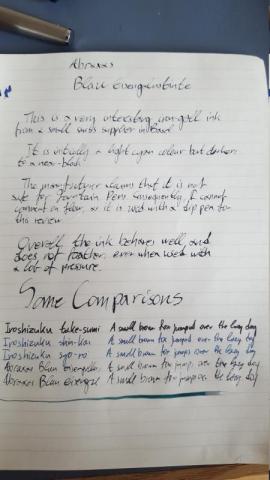 Abraxas
Blau Eisengallustinte
This is a very interesting iron-gall ink
from a small swiss supplier in Basel
It is initially a light cyan colour but darkens
to a near-black
The manufacturer claims that it is not
safe for fountain pens. Consequently, I cannot
comment on flow, as it is used with a dip pen for
this review.
Overall the ink behaves well, and
does not feather, even when used with
a lot of pressure.
Some Comparisons
Iroshizuku take-sumi A small brown fox jumped over the lazy dog
Iroshizuku shin-kai A small brown fox jumped over the lazy dog
Iroshizuku syo-ro A small brown fox jumps over the lazy dog
Abraxas Blau Eisengallus A small brown fox jumps over the lazy dog
Abraxas Blau Eisengal A small brown fox jumps over the lazy dog